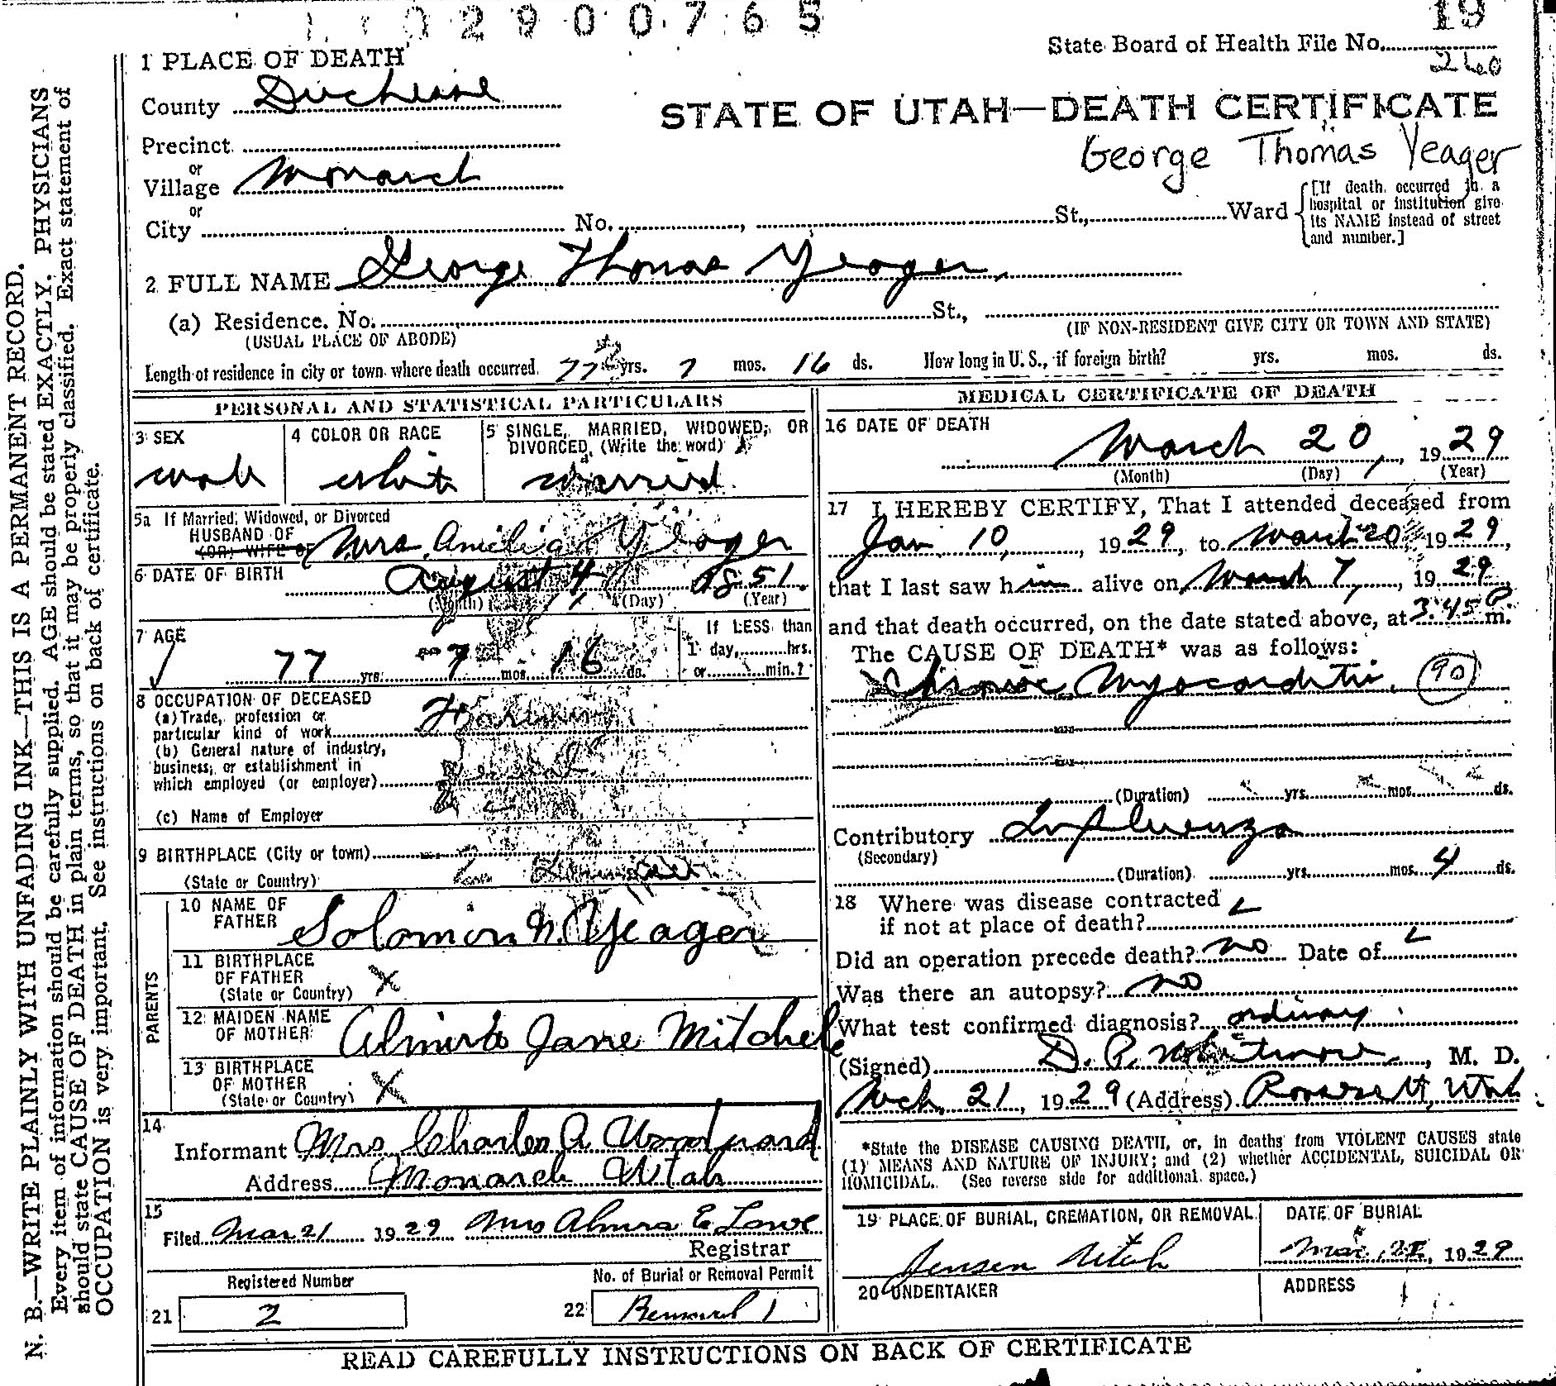 1 1 0 2 9 0 0 7 6 5
19
State Board of Health File No.
260
1 PLACE OF DEATH
County Duchesne
STATE OF UTAH—DEATH CERTIFICATE
George Thomas Yeager
Precinct
or
Village Monarch
or
City No. St., Ward
[If death occurred in a
hospital or institution give
its NAME instead of street
and number.]
2 FULL NAME George Thomas Yeager
(a) Residence. No. St.,
(USUAL PLACE OF ABODE) (IF NON-RESIDENT GIVE CITY OR TOWN AND STATE)
Length of residence in city or town where death occurred 77 yrs. 7 mos. 16 ds. How long in U. S., if foreign birth? yrs. mos. ds.
PERSONAL AND STATISTICAL PARTICULARS
3 SEX
male
4 COLOR OR RACE
white
5 SINGLE, MARRIED, WIDOWED, OR
DIVORCED, (Write the word)
married
5a If Married, Widowed, or Divorced
HUSBAND OF
(OR) WIFE OF Mrs. Amelia Yeager
6 DATE OF BIRTH August 4 1851
(Month) (Day) (Year)
7 AGE
77 yrs. 7 mos. 16 ds.
If LESS than
1 day, hrs.
or min.?
8 OCCUPATION OF DECEASED
(a) Trade, profession or
particular kind of work Farming
(b) General nature of industry,
business, or establishment in
which employed (or employer)
(c) Name of Employer
9 BIRTHPLACE (City or town)
(State or Country)
PARENTS
10 NAME OF
FATHER Solomon N. Yeager
11 BIRTHPLACE
OF FATHER
(State or Country) X
12 MAIDEN NAME
OF MOTHER Almira Jane Mitchele
13 BIRTHPLACE
OF MOTHER
(State or Country) X
14
Informant Mrs Charles A Woodward
Address Monarch Utah
15
Filed Mar 21 1929 Mrs Almira E Lowe
Registrar
Registered Number
21 2
No. of Burial or Removal Permit
22 Removal 1
MEDICAL CERTIFICATE OF DEATH
16 DATE OF DEATH
March 20, 1929
(Month) (Day) (Year)
17 I HEREBY CERTIFY, That I attended deceased from
Jan 10, 1929, to March 20 1929,
that I last saw him alive on March 7, 1929
and that death occurred, on the date stated above, at 3:45 P. m.
The CAUSE OF DEATH* was as follows:
Chronic Myocarditis. 90
(Duration) yrs. mos. ds.
Contributory Influenza
(Secondary)
(Duration) yrs. mos. 4 ds.
18 Where was disease contracted
if not at place of death?
Did an operation precede death? no Date of
Was there an autopsy? no
What test confirmed diagnosis? ordinary
(Signed) D. P. Whitmore, M. D.
Mch. 21, 1929 (Address) Roosevelt, Utah
*State the DISEASE CAUSING DEATH, or, in deaths from VIOLENT CAUSES state
(1) MEANS AND NATURE OF INJURY; and (2) whether ACCIDENTAL, SUICIDAL OR
HOMICIDAL. (See reverse side for additional space.)
19 PLACE OF BURIAL, CREMATION, OR REMOVAL
Jensen Utah
DATE OF BURIAL
Mar, 1929
20 UNDERTAKER
ADDRESS
READ CAREFULLY INSTRUCTIONS ON BACK OF CERTIFICATE
N. B.—WRITE PLAINLY WITH UNFADING INK—THIS IS A PERMANENT RECORD.
Every item of information should be carefully supplied. AGE should be stated EXACTLY. PHYSICIANS
should state CAUSE OF DEATH in plain terms, so that it may be properly classified. Exact statement of
OCCUPATION is very important. See instructions on back of certificate.